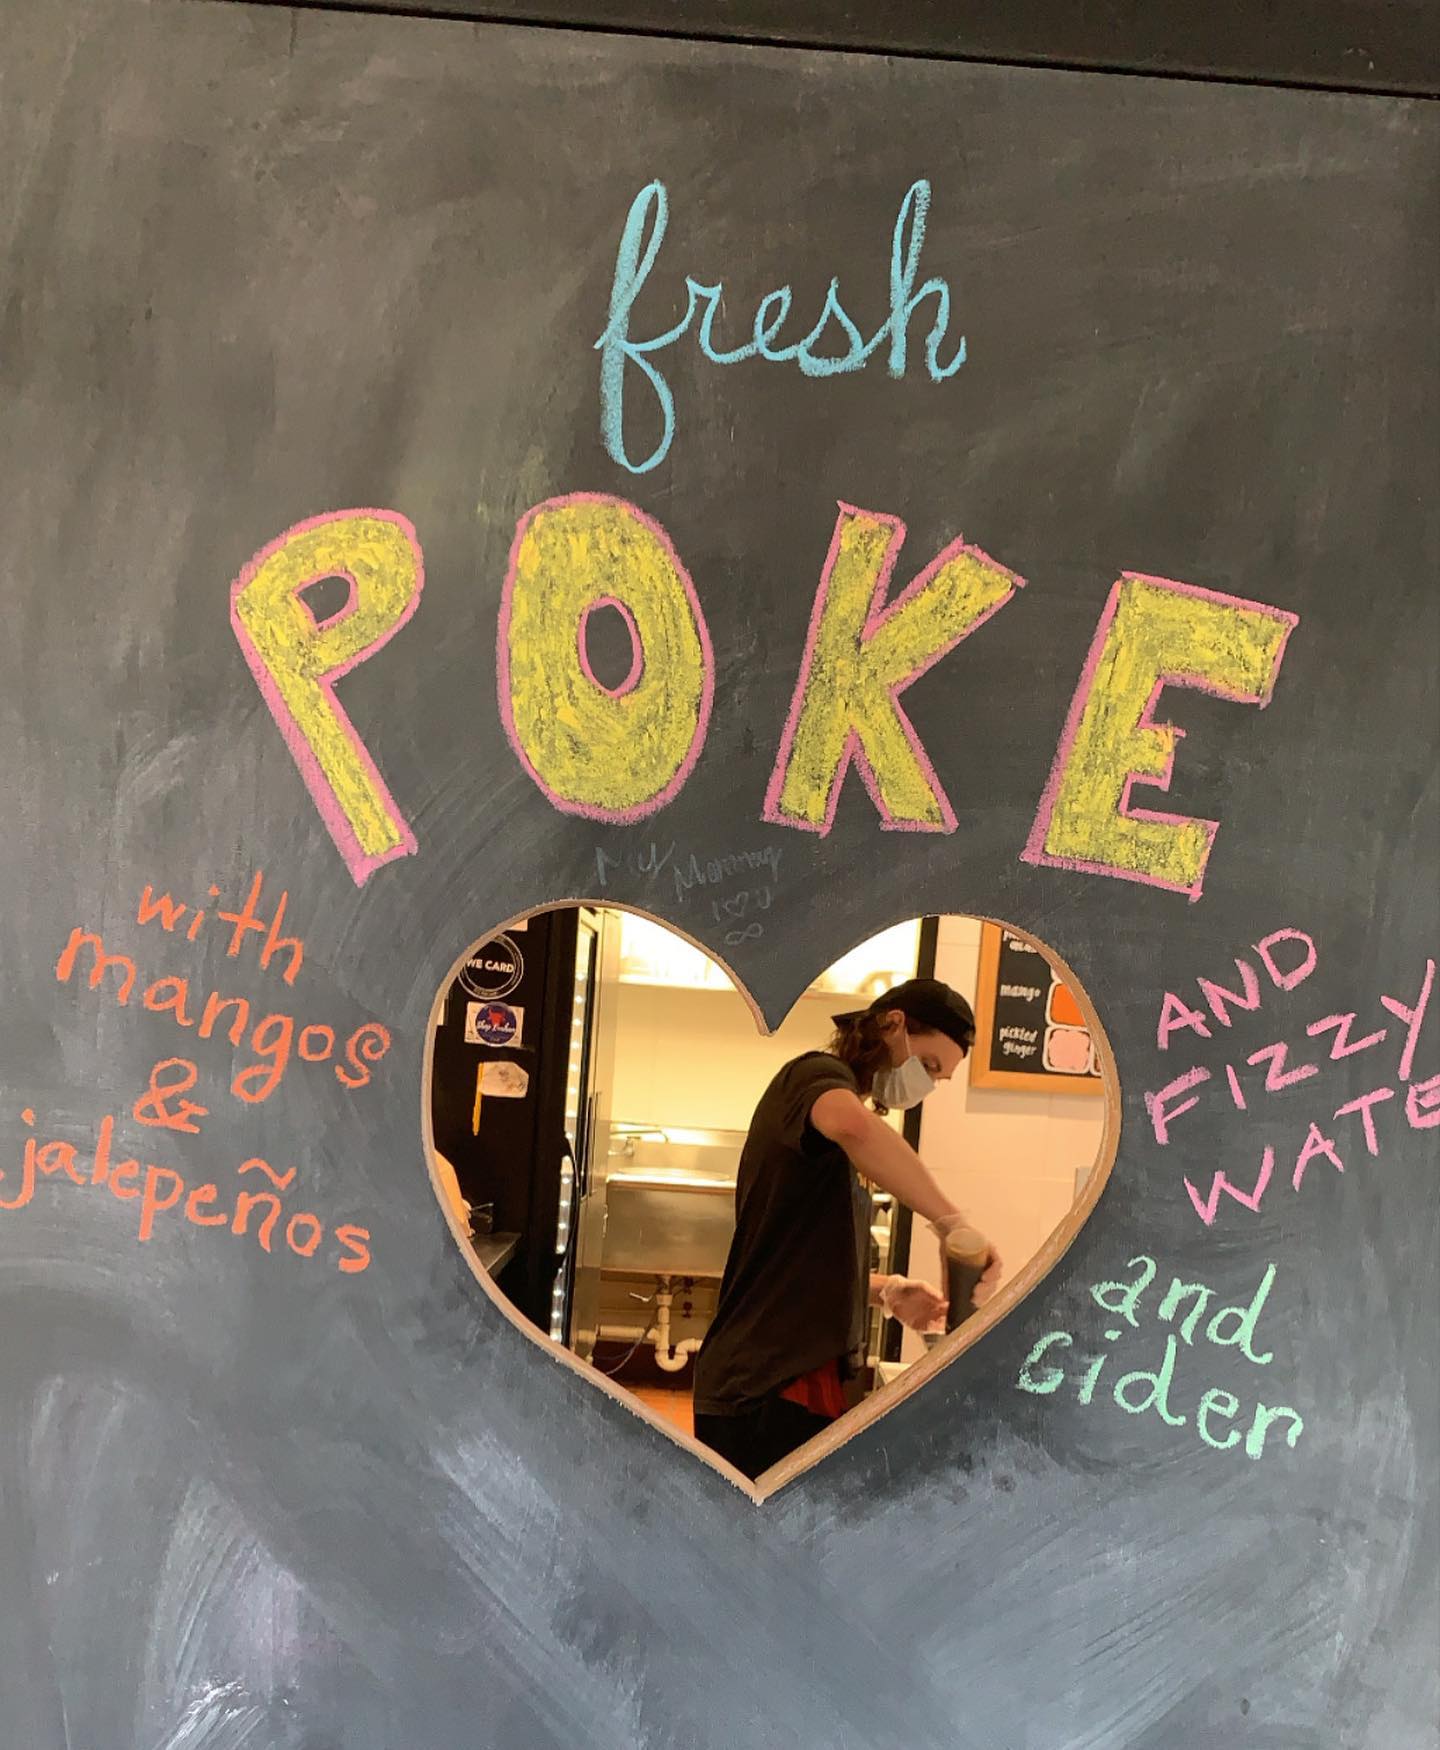 fresh
POKE
with
mangos
&
jalepeños
My Mommy
I ♡ U
∞
AND
FIZZY
WATE
and
cider
WE CARD
mango
pickled
ginger